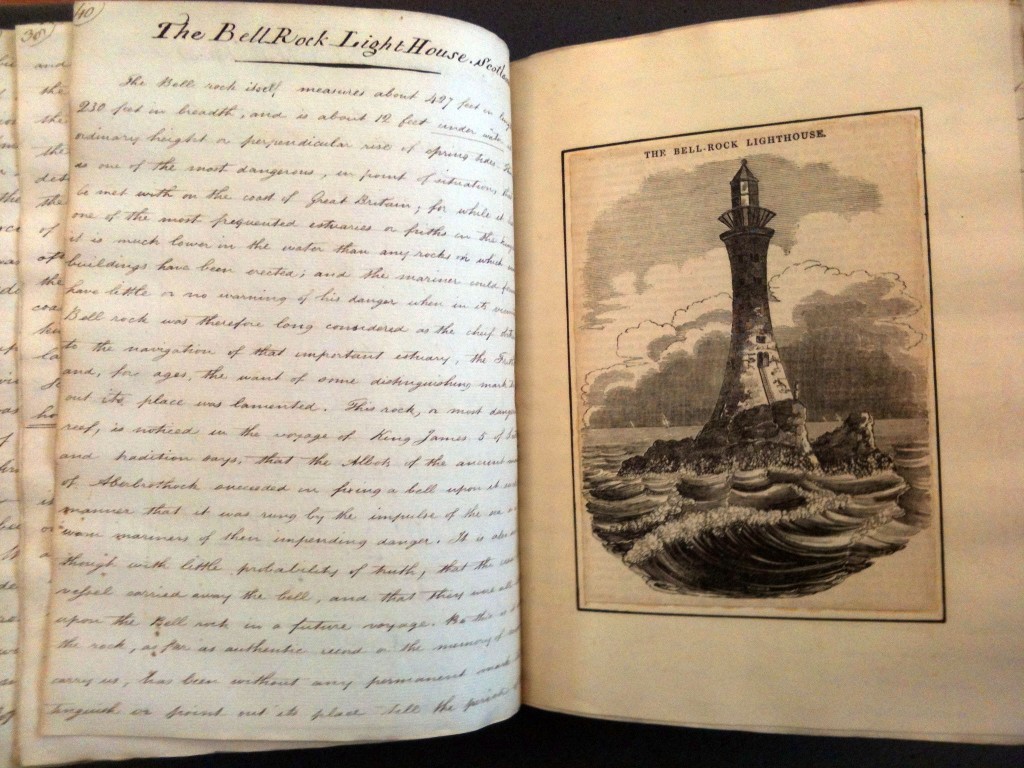 40
The Bell Rock Light House. Scotland
The Bell rock itself measures about 427 feet in
230 feet in breadth, and is about 12 feet under water
ordinary height or perpendicular rise of spring tides.
is one of the most dangerous, in point of situation,
be met with on the coast of Great Britain; for while it
one of the most frequented estuaries or friths in the
it is much lower in the water than any rocks on which
buildings have been erected; and the mariner could
have little or no warning of his danger when in its
Bell rock was therefore long considered as the chief
to the navigation of that important estuary, the
and, for ages, the want of some distinguishing mark
out its place was lamented. This rock, or most
reef, is noticed in the voyage of King James 5 of
and tradition says, that the Abbot of the ancient
of Aberbrothock succeeded in fixing a bell upon it
manner that it was rung by the impulse of the sea
warn mariners of their impending danger. It is also
though with little probability of truth, that the
vessel carried away the bell, and that they were
upon the Bell rock in a future voyage. Be this
the rock, as far as authentic record or the memory of
carry us, has been without any permanent mark
tinguish or point out its place till the
THE BELL-ROCK LIGHTHOUSE.